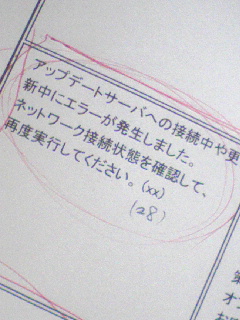 アップデートサーバへの接続中や更
新中にエラーが発生しました。
ネットワーク接続状態を確認して、
再度実行してください。(xx)
(28)
第
オ